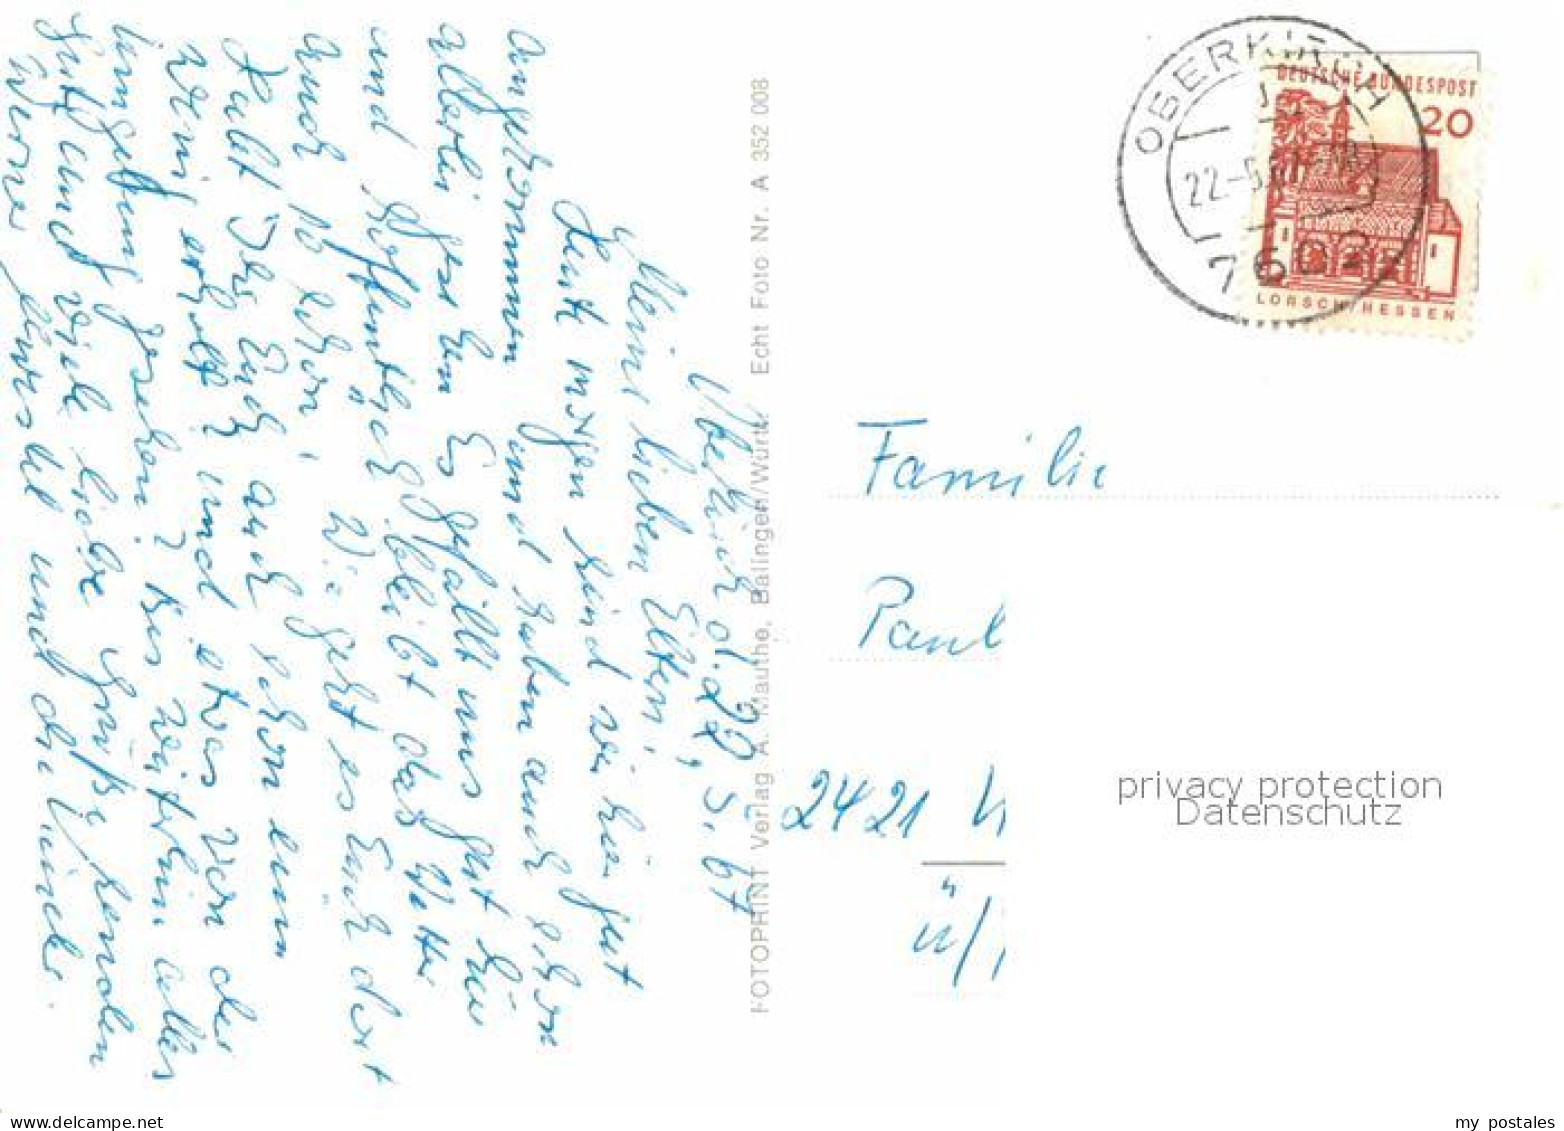 Oberkirch d. 22.5.67
Meine lieben Eltern,
Heute morgen sind wir hier gut
angekommen und haben auch schon
allerlei gesehen. Es gefällt uns gut hier
und hoffentlich bleibt das Wetter
auch so schön. Wie geht es Euch dort
Habt Ihr Euch auch schon ein
wenig erholt und etwas von der
Umgebung gesehen? Bis weiterhin alles
Gute und viele liebe Grüße senden
Werner Bärbel und die Kinder.
FOTOPRINT Verlag A. Mauthe, Balingen/Württ. Echt Foto Nr. A 352 008
OBERKIRCH
22.-5.
7602
DEUTSCHE BUNDESPOST
20
LORSCH/HESSEN
Familie
Paul
2421
ü/
privacy protection
Datenschutz
my postales